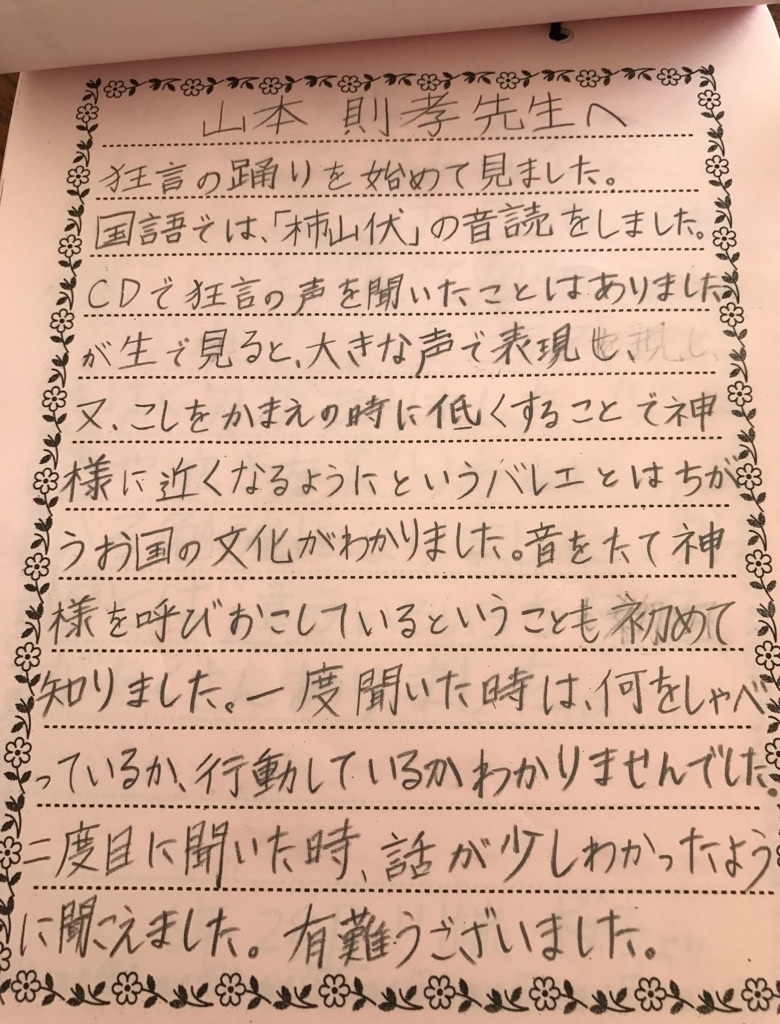 山本 則孝先生へ
狂言の踊りを始めて見ました。
国語では、「柿山伏」の音読をしました。
CDで狂言の声を聞いたことはありました
が生で見ると、大きな声で表現し、
又、こしをかまえの時に低くすることで神
様に近くなるようにというバレエとはちが
うお国の文化がわかりました。音をたて神
様を呼びおこしているということも初めて
知りました。一度聞いた時は、何をしゃべ
っているか、行動しているかわかりませんでした。
二度目に聞いた時、話が少しわかったよう
に聞こえました。有難うございました。